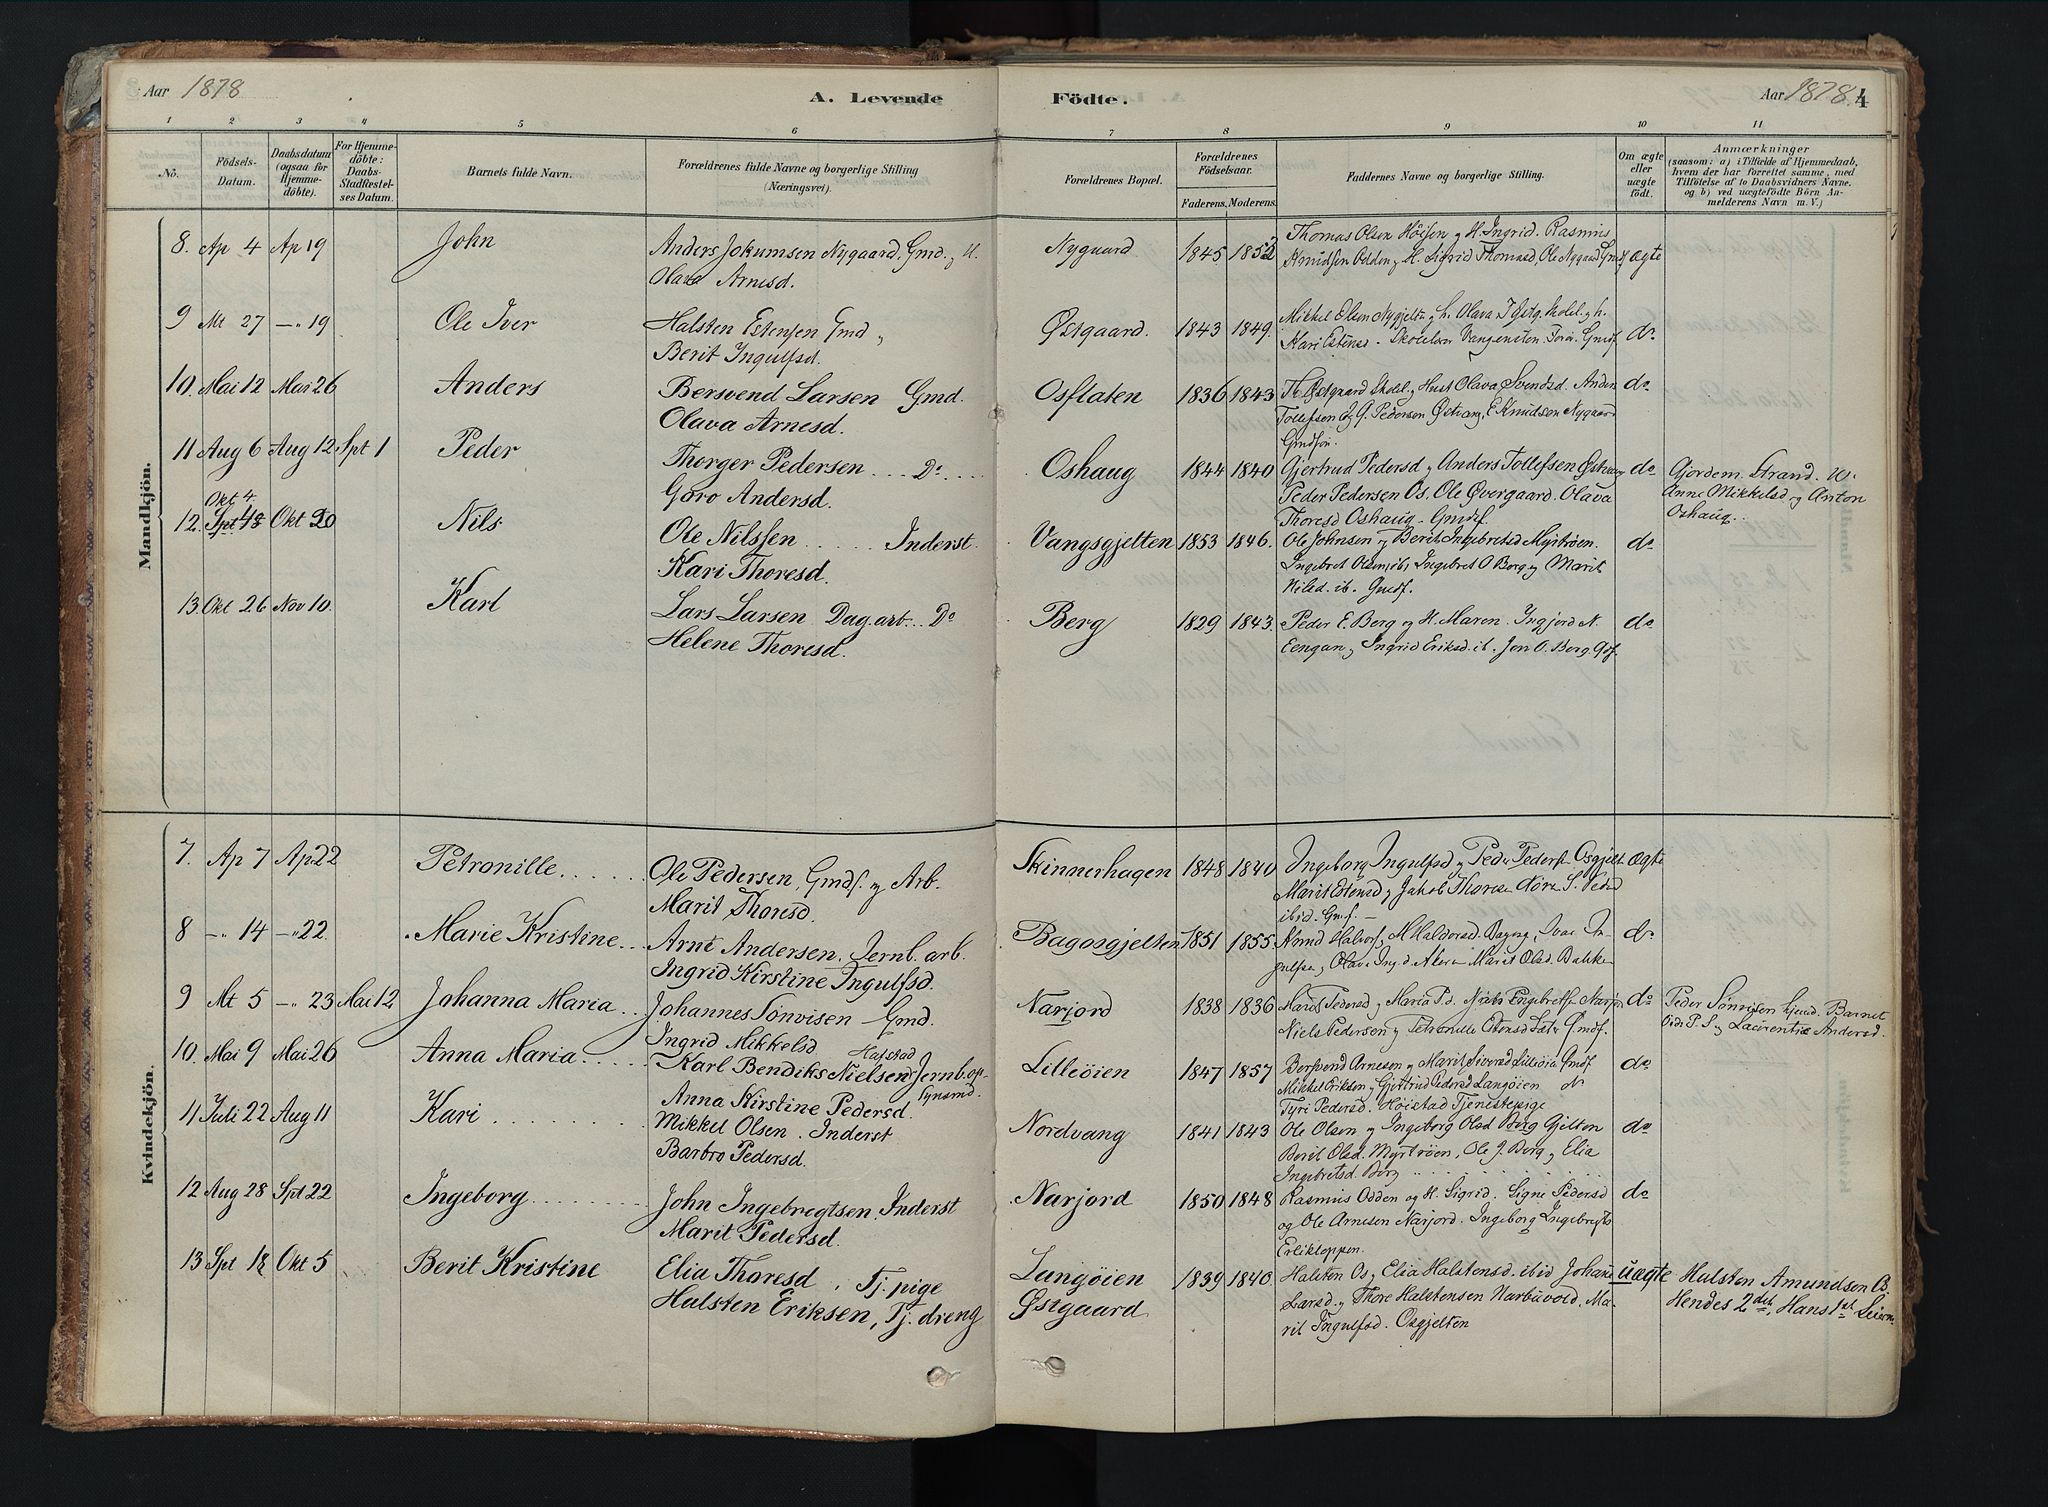 Aar 1878
A. Levende Födte.
Aar 1878. 4
1 2 3 4 5 6 7 8 9 10 11
No.
Födsels-Datum.
Daabsdatum (ogsaa for Hjemme-döbte).
For Hjemme-döbte: Daabs-Stadfæstel-ses Datum.
Barnets fulde Navn.
Forældrenes fulde Navne og borgerlige Stilling (Næringsvei).
Forældrenes Bopæl.
Forældrenes Födselsaar.
Faderens. Moderens.
Faddernes Navne og borgerlige Stilling.
Om ægte eller uægte födt.
Anmærkninger
(saasom: a) i Tilfælde af Hjemmedaab, hvem der har forrettet samme, med Tilföielse af to Daabsvidners Navne. og b) ved uægtefödte Börn An-melderens Navn m. V.)
Mandkjön.
8. Ap 4 Ap 19 John Anders Jokumsen Nygaard, Gmd. og H. Nygaard 1845 1852 Thomas Olsen Höisen og H. Ingrid. Rasmus
Olava Arnesd. Knudsen Odden og H. Sigrid Thomasd, Ole Nygaard Gmdf ægte
9 Mt 27 —"— 19 Ole Iver Halsten Estensen Gmd og Østgaard. 1843 1849. Mikkel Olsen Nygjelten og h. Olava
Berit Ingulfsd. Kari Estensd. Vangensten Gmdf do
10. Mai 12 Mai 26 Anders Bersvend Larsen Gmd. Osflaten 1836 1843 Th Østgaard Skoleh og Hust Olava Svendsd. Anders do
Olava Arnesd. Tollefsen og G. Pedersen Østvang, E Knudsen Nygaard
Gmdfön.
11 Aug 6 Aug 12 Spt 1 Peder Thorger Pedersen ... Do .... Oshaug 1844 1840 Gjertrud Pedersd og Anders Tollefsen Østvang do Gjordem. Strand. W.
Goro Andersd. Peder Pedersen Os. Ole Øvergaard. Olava Anne Mikkelsd og Anton
Thoresd Oshaug - Gmdf. Oshaug.
Okt 4.
12. Spt 18 Okt 20 Nils Ole Nilssen ..... Inderst. Vangsgjelten 1853 1846. Ole Johnsen og Berit Ingebretsd Myrtröen. do
Kari Thoresd. Ingebret Olsen ib, Ingebret O Berg og Marit
Nilsd. ib. Gmdf.
13. Okt 26 Nov 10. Karl Lars Larsen Dag.arb... Do Berg 1829 1843. Peder E. Berg og H. Maren. Ingjerd N. do
Helene Thoresd. Eengan og Ingrid Eriksd. ib. Jon O. Berg. Gdf.
Kvindekjön.
7. Ap 7 Ap 22 Petronille...... Ole Pedersen, Gmds. og Arb. Skinnerhagen 1848 1840 Ingeborg Ingulfsd og Peder Pedersen Osgjelt. ægte
Marit Thoresd. Marit Estensd og Jakob Thoresen Nöra S. Pedersd
ibid. Gmf. —
8 —"— 14 —"— 22. Marie Kristine... Arnt Andersen, Jernb. arb. Bagosgjelten 1851 1855. M Haldorsd. Bagosg, Ivar In- do
Ingrid Kirstine Ingulfsd. gulfsen, Olava Ing d. Marit Olsd. Bakken
9 Mt 5 —"— 23 Mai 12 Johanna Maria.. Johannes Sönvisen Gmd. Narjord 1838 1836 Marit Pedersd og Maria P.d. Niels Engebretsen Narjord do Peder Sönvisen hjemd. Barnet
Ingrid Mikkelsd Niels Pedersen og Petronille Gmdf. Vidr. P. S og Laurentia Andersd.
10. Mai 9 Mai 26 Anna Maria .... Karl Bendiks Nielsen Hafstad Jernb. op- Lilleöien 1847 1857 Bersvend Arnesen og Marit Siversd Lilleöien Gmdf do
Anna Kirstine Pedersd. synsmd. Mikkel Eriksen og Gjertrud Pedersd Langöien do
Tyri Pedersd. Höistad Tjenestepige
11 Juli 22 Aug 11 Kari ....... Mikkel Olsen. Inderst Nordvang 1841 1843 Ole Olsen og Ingeborg Olsd Berg Gjelten do
Barbro Pedersd. Berit Olsd. Myrtröen, Ole J. Berg og Elia
Ingebretsd. Berg
12 Aug 28 Spt 22 Ingeborg....... John Ingebregtsen. Inderst Narjord 1850 1848 Rasmus Odden og H. Sigrid. Signe Pedersd do
Marit Pedersd. og Ole Arnesen Narjord. Ingeborg Ingebregts
Erliktoppen.
13 Spt 18 Okt 5 Berit Kristine Elia Thoresd, Tj. pige Langöien 1839 1840. Halsten Os og Elia Halstensd. ibid Johan uægte Halsten Amundsen O.
Halsten Eriksen, Tj. dreng Østgaard Larsd. og Thore Halstensen Narbuvold. Ma- Hendes 2det, Hans 1st Leierm.
rit Ingulfsd. Osgjelten